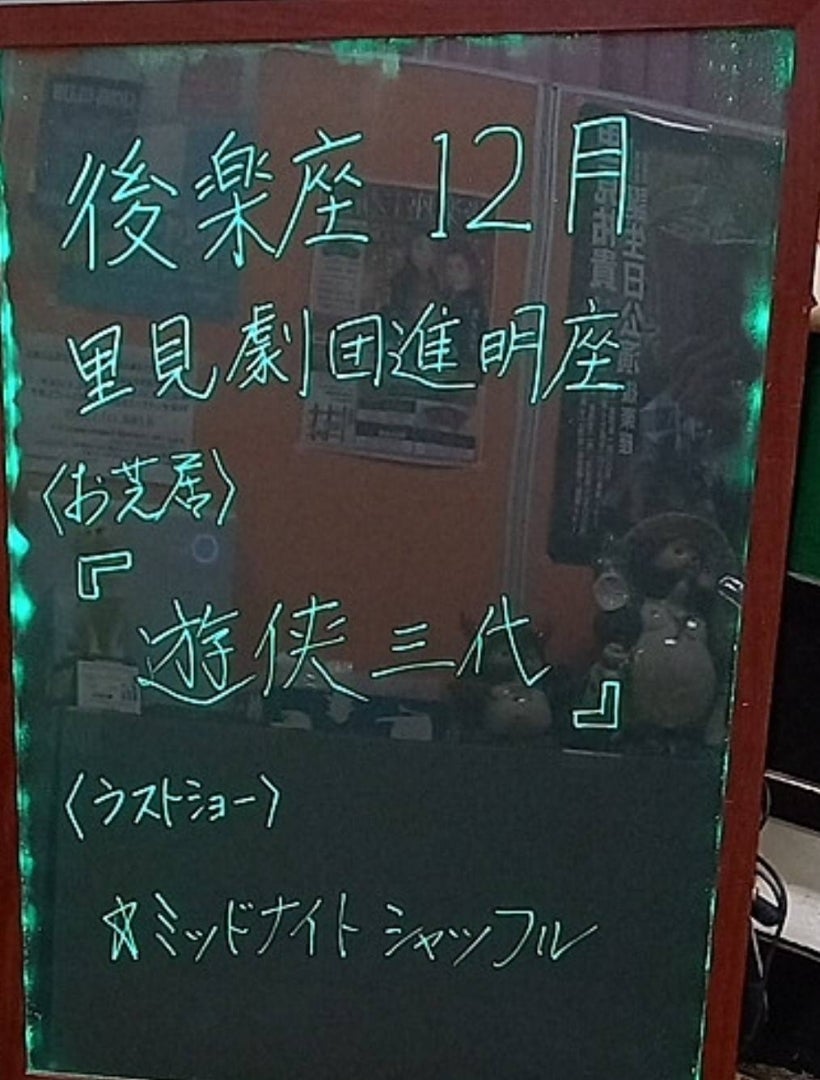 後楽座 12月
里見劇団進明座
〈お芝居〉
『
遊侠三代
』
〈ラストショー〉
☆ミッドナイト シャッフル